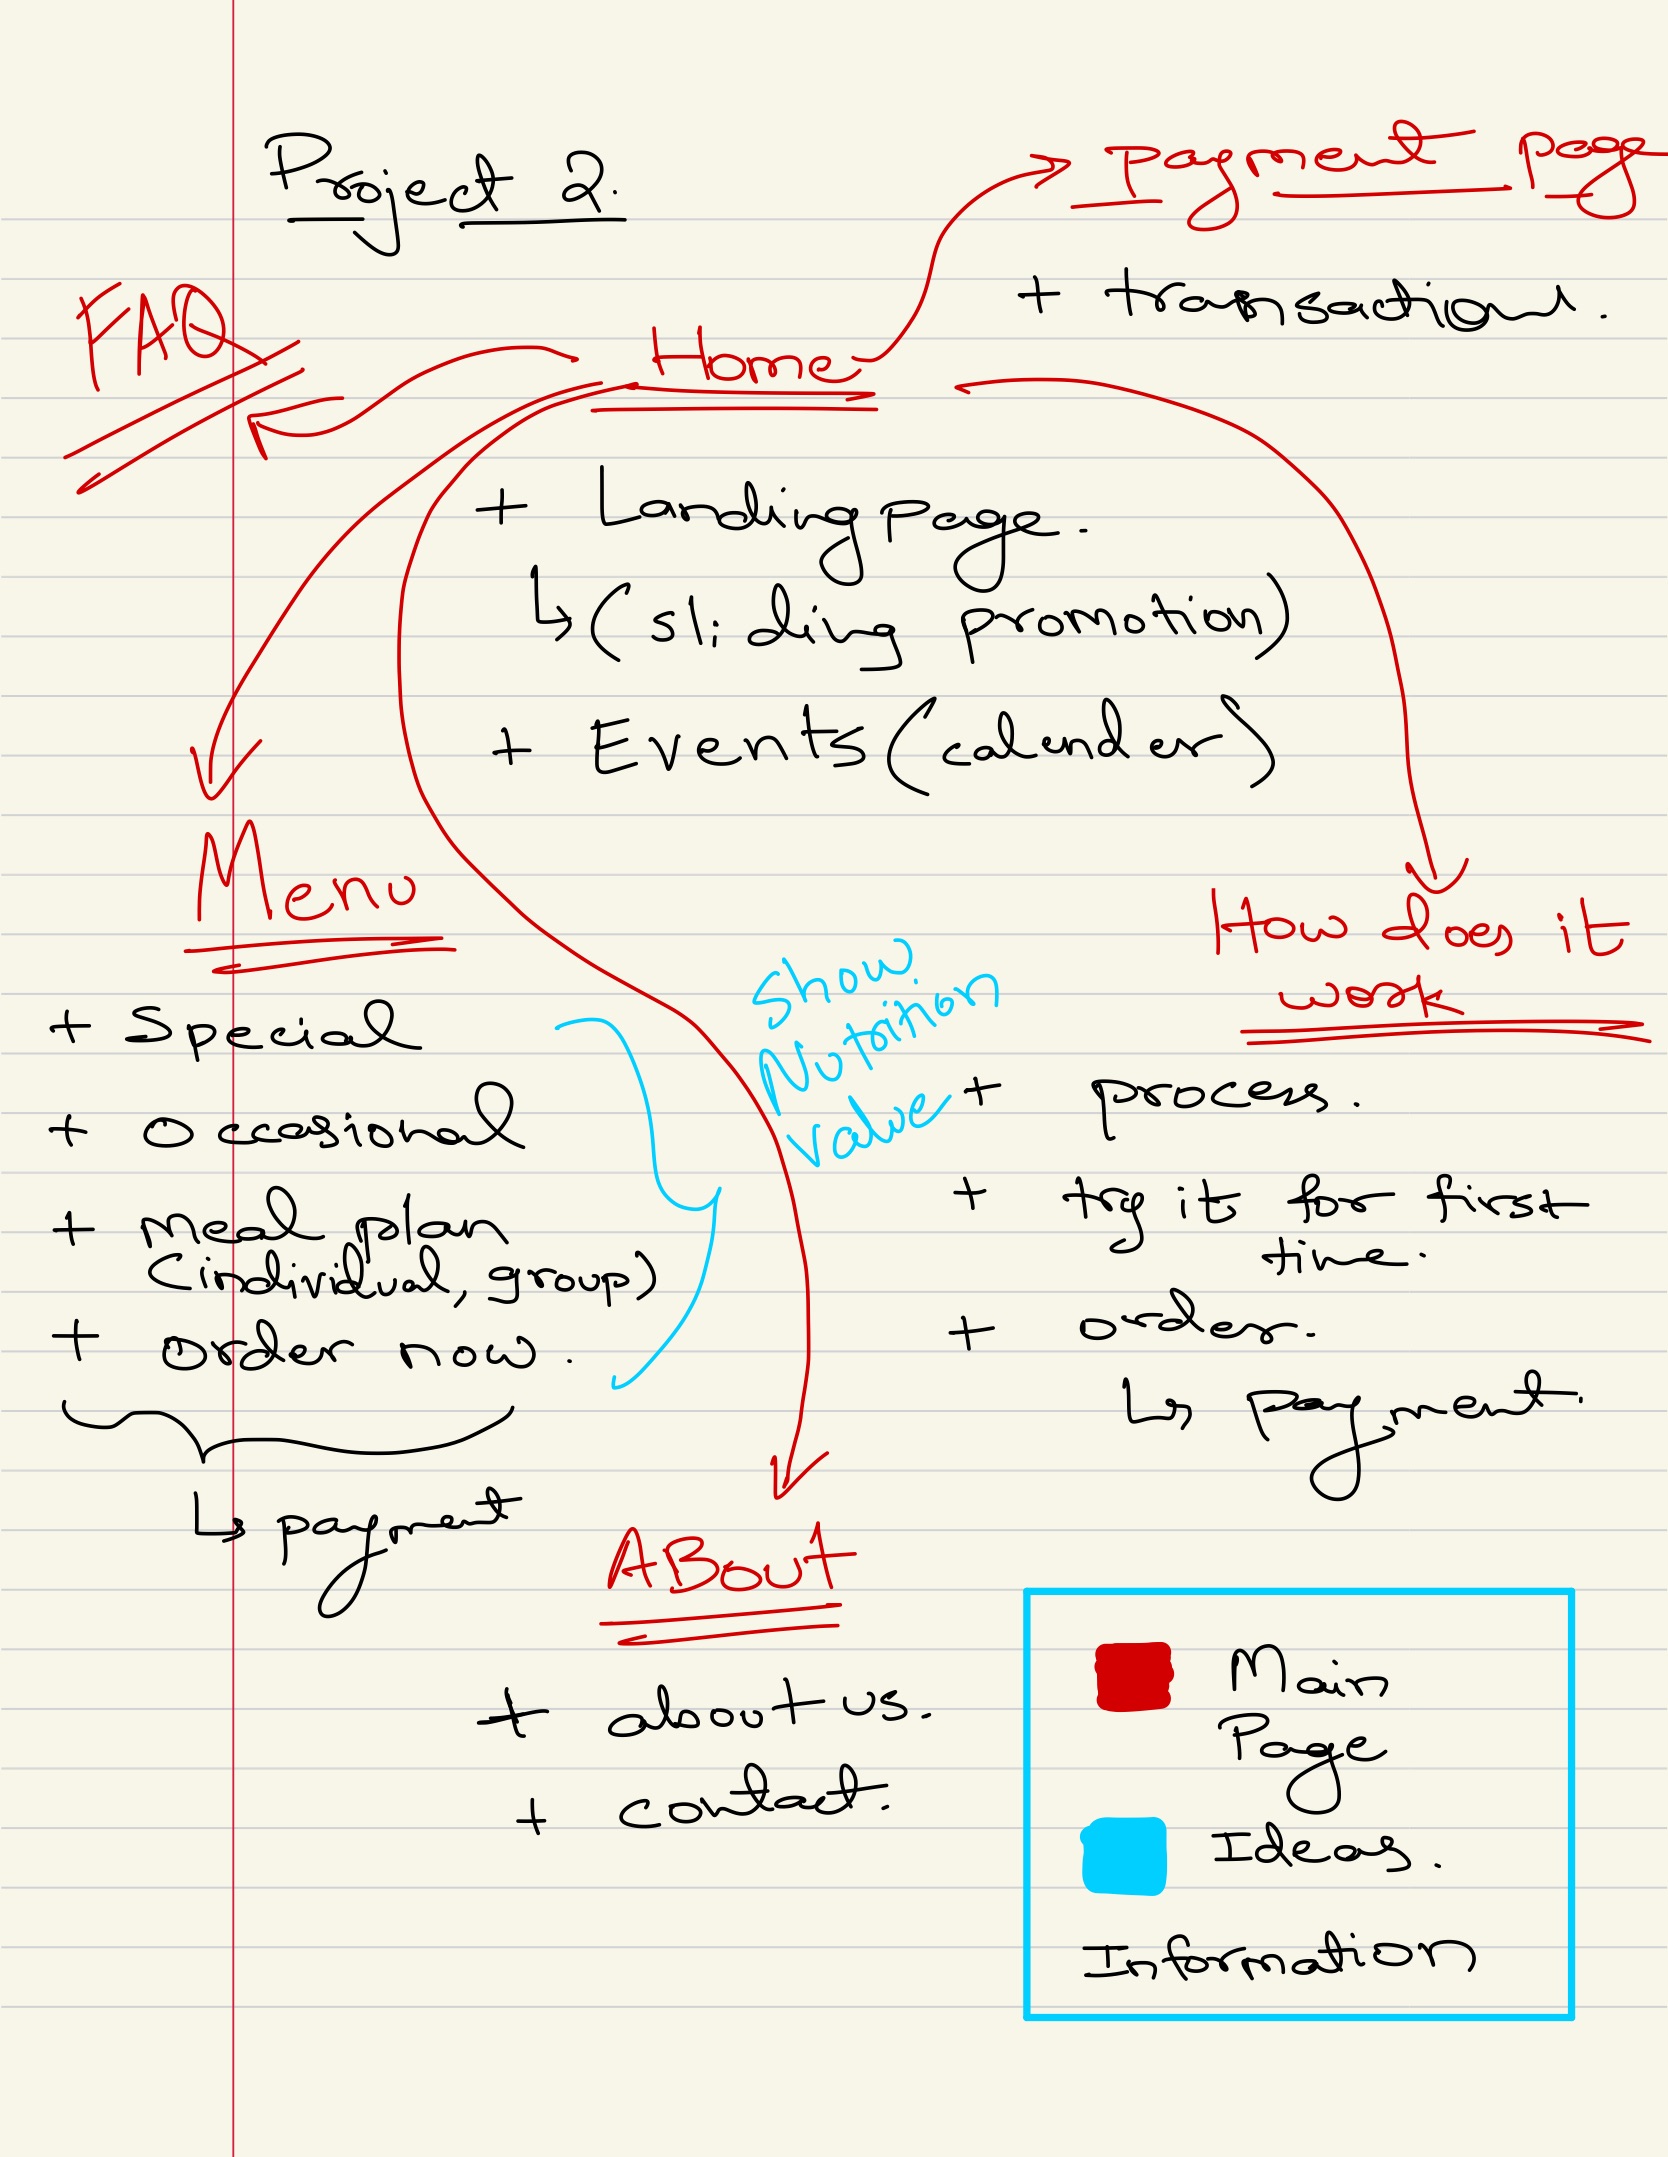 Project 2.
Payment Page
+ transaction.
FAQ
Home
+ Landing page.
↳ (sliding promotion)
+ Events (calender)
Menu
+ Special
+ Occasional
+ Meal plan
(individual, group)
+ order now.
↳ payment
Show
Nutrition
value
How does it
work
+ process.
+ try it for first
time.
+ order.
↳ payment.
ABout
+ about us.
+ contact.
Main
Page
Ideas.
Information